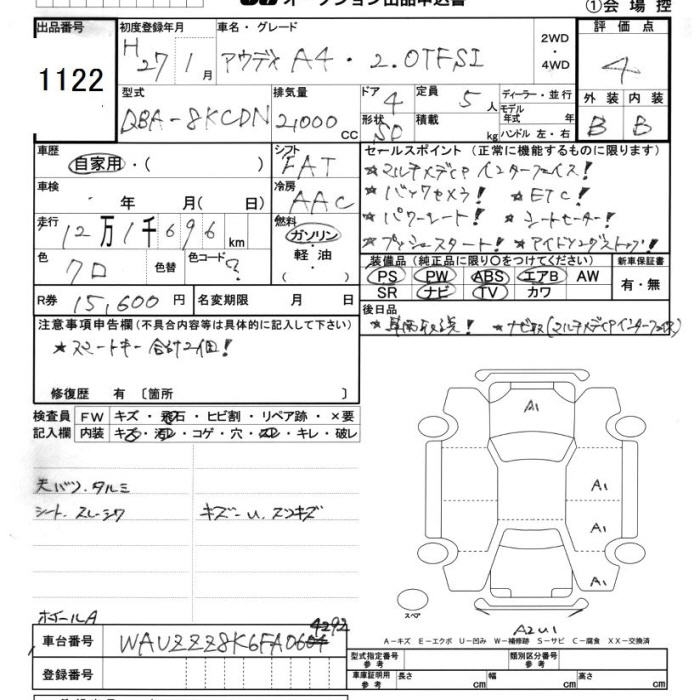 オークション出品申込書
①会場控
出品番号 初度登録年月 車名・グレード 評価点
1122 H27 1月 アウディ A4・2.0TFSI 2WD・4WD 4
型式 排気量 ドア 4 定員 5人 ディーラー・並行 外装 内装
DBA-8KCDN 2,000cc 形状 SD 積載 kg モデル年式 年 B B
ハンドル 左・右
車歴 自家用・( ) シフト FAT セールスポイント (正常に機能するものに限ります)
★マルチメディアインターフェイス!
車検 年 月(日) 冷房 AAC ★バックカメラ! ★ETC!
走行 12万1千696km 燃料 ガソリン・軽油・( ) ★パワーシート! ★シートヒーター!
★プッシュスタート! ★アイドリングストップ!
色 クロ 色替 色コード ?
装備品 (純正品に限り○をつけてください) 新車保証書
PS PW ABS エアB AW 有・無
SR ナビ TV カワ
R券 15,600円 名変期限 月 日
後日品
★車両取説! ★ナビ取(マルチメディアインターフェイス)
注意事項申告欄 (不具合内容等は具体的に記入して下さい)
★スマートキー合計2個!
修復歴 有 〔箇所 〕
検査員 FW キズ・飛石・ヒビ割・リペア跡・×要
記入欄 内装 キズ・汚レ・コゲ・穴・スレ・キレ・破レ
天バリ.タルミ
シート.スレ・シワ キズ-U.スリキズ
ホイールA
A1
A1
A1
A1
スペア
A2U1
A-キズ E-エクボ U-凹み W-補修跡 S-サビ C-腐食 XX-交換済
車台番号 WAUZZZ8K6FA064292
型式指定番号 参考 類別区分番号 参考
登録番号 車庫証明用 参考 長さ cm 幅 cm 高さ cm